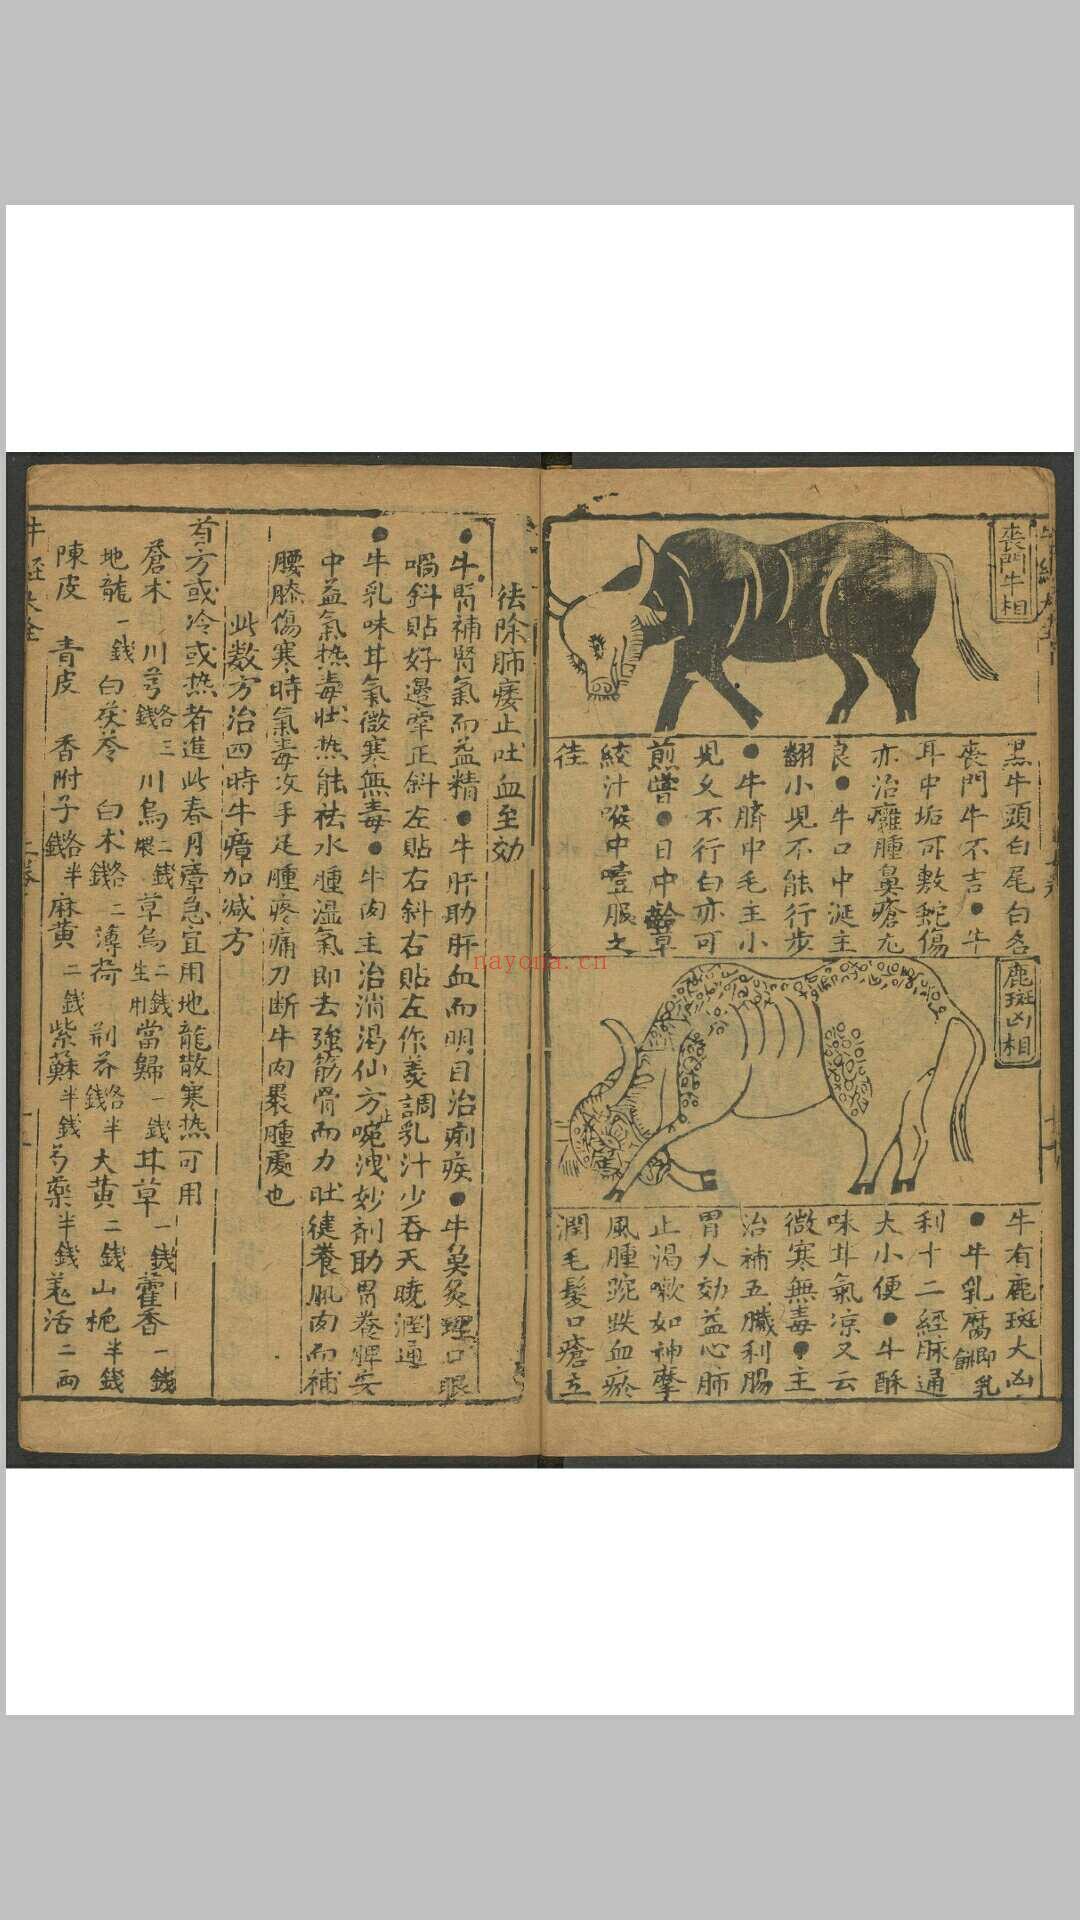 喪門牛相
黑牛頭白尾白名
喪門牛不吉●牛
耳中垢可敷蛇傷
亦治癰腫鼻瘡尤
良●牛口中涎主
翻小兒不能行步
●牛臍中毛主小
兒久不行白亦可
煎嘗●日中齝草
絞汁喉中噎服之
佳
鹿斑凶相
牛有鹿斑大凶
●牛乳腐即乳餅
利十二經脉通
大小便●牛酥
味甘氣凉又云
微寒無毒●主
治補五臟利腸
胃人効益心肺
止渴嗽如神摩
風腫踠跌血瘀
潤毛髮口瘡立
祛除肺痿止吐血至効
●牛腎補腎氣而益精●牛肝助肝血而明目治痢疾●牛糞灸理口眼
喎斜貼好邊牽正斜左貼右斜右貼左作羹調乳汁少吞天曉潤通
●牛乳味甘氣微寒無毒●牛肉主治消渴仙方啘洩止妙劑助胃養脾安
中益氣热毒狀热能祛水腫湿氣即去強筋骨而力壯健養肌肉而補
腰膝傷寒時氣毒攻手足腫疼痛刀断牛肉裹腫處也
此数方治四時牛瘴加減方
首方或冷或热者進此春月瘴急宜用地龍散寒热可用
蒼术 川芎各三錢 川烏煨二錢草烏生用二錢當歸一錢甘草一錢藿香一錢
地龍一錢白茯苓 白术各二錢薄荷 荆芥各半錢大黄二錢山梔半錢
陳皮 青皮 香附子各半錢麻黄二錢紫蘇半錢芍藥半錢羌活二両
牛經大全
二卷
nayona.cn